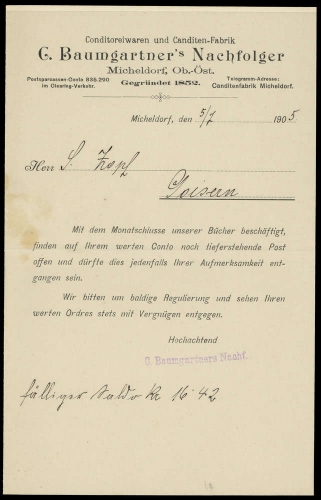 Conditoreiwaren und Canditen-Fabrik
C. Baumgartner's Nachfolger
Micheldorf, Ob.-Öst.
Postsparcassen-Conto 835.290
im Clearing-Verkehr.
Gegründet 1852.
Telegramm-Adresse:
Canditenfabrik Micheldorf.
Micheldorf, den 5/7 1905
Herr S. Zopf
Goisern
Mit dem Monatschlusse unserer Bücher beschäftigt,
finden auf Ihrem werten Conto noch tieferstehende Post
offen und dürfte dies jedenfalls Ihrer Aufmerksamkeit ent-
gangen sein.
Wir bitten um baldige Regulierung und sehen Ihren
werten Ordres stets mit Vergnügen entgegen.
Hochachtend
C. Baumgartners Nachf.
fälliger Saldo Kr 16·42